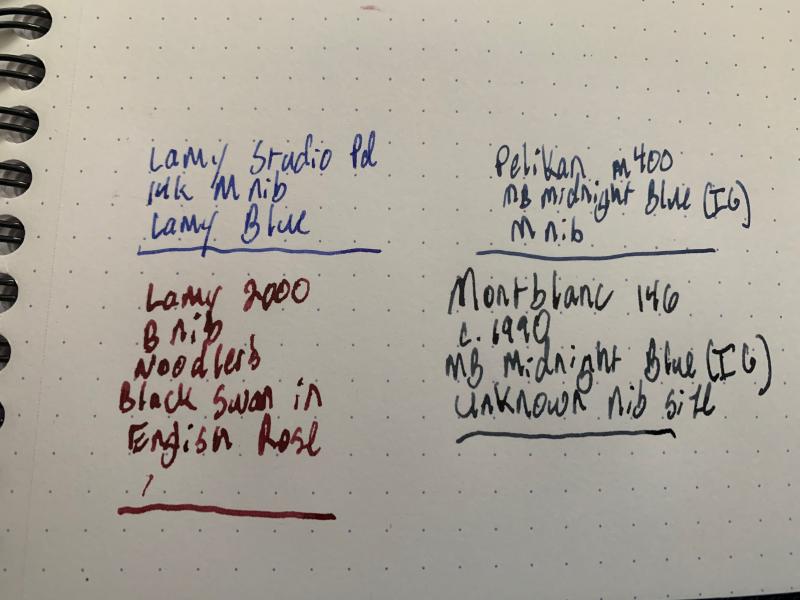 Lamy Studio Pd
14k M nib
Lamy Blue
Lamy 2000
B nib
Noodlers
Black Swan in
English Rose
Pelikan m400
MB Midnight Blue (IG)
M nib
Montblanc 146
c. 1990
MB Midnight Blue (IG)
Unknown nib size